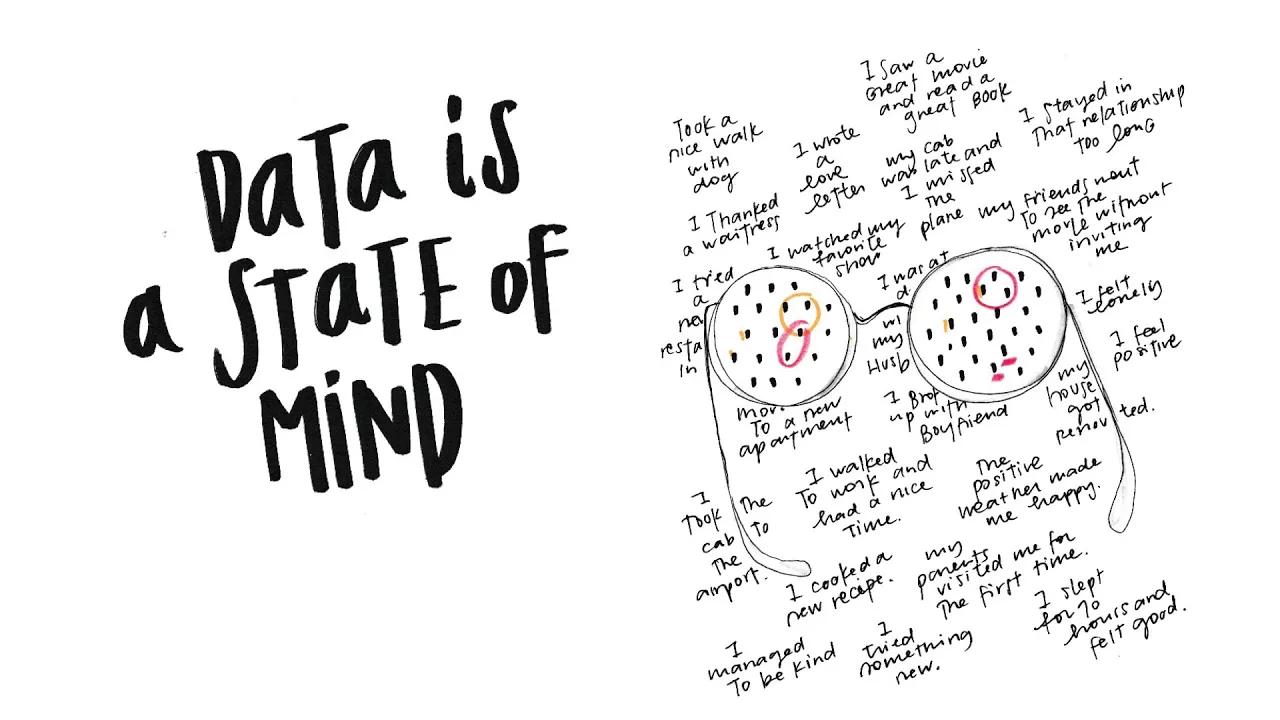 Data is
a State of
Mind
I saw a
great movie
and read a
great book
Took a
nice walk
with
dog
I wrote
a
love
letter
my cab
was late and
I missed
the
plane
I stayed in
that relationship
too long
I Thanked
a waitress
I watched my
favorite
show
my friends went
to see the
movie without
inviting
me
I tried
a
resta
in
I was at
my
Husb
I felt
lonely
I feel
positive
To a new
apartment
I
up with
Boyfriend
my
house
got
renov ted.
I
Took the
cab To
The
airport.
I walked
To work and
had a nice
Time.
The
positive
weather made
me happy.
I cooked a
new recipe.
my
parents
visited me for
The first time.
I
managed
To be kind
I
tried
something
new.
I slept
for 10
hours and
felt good.